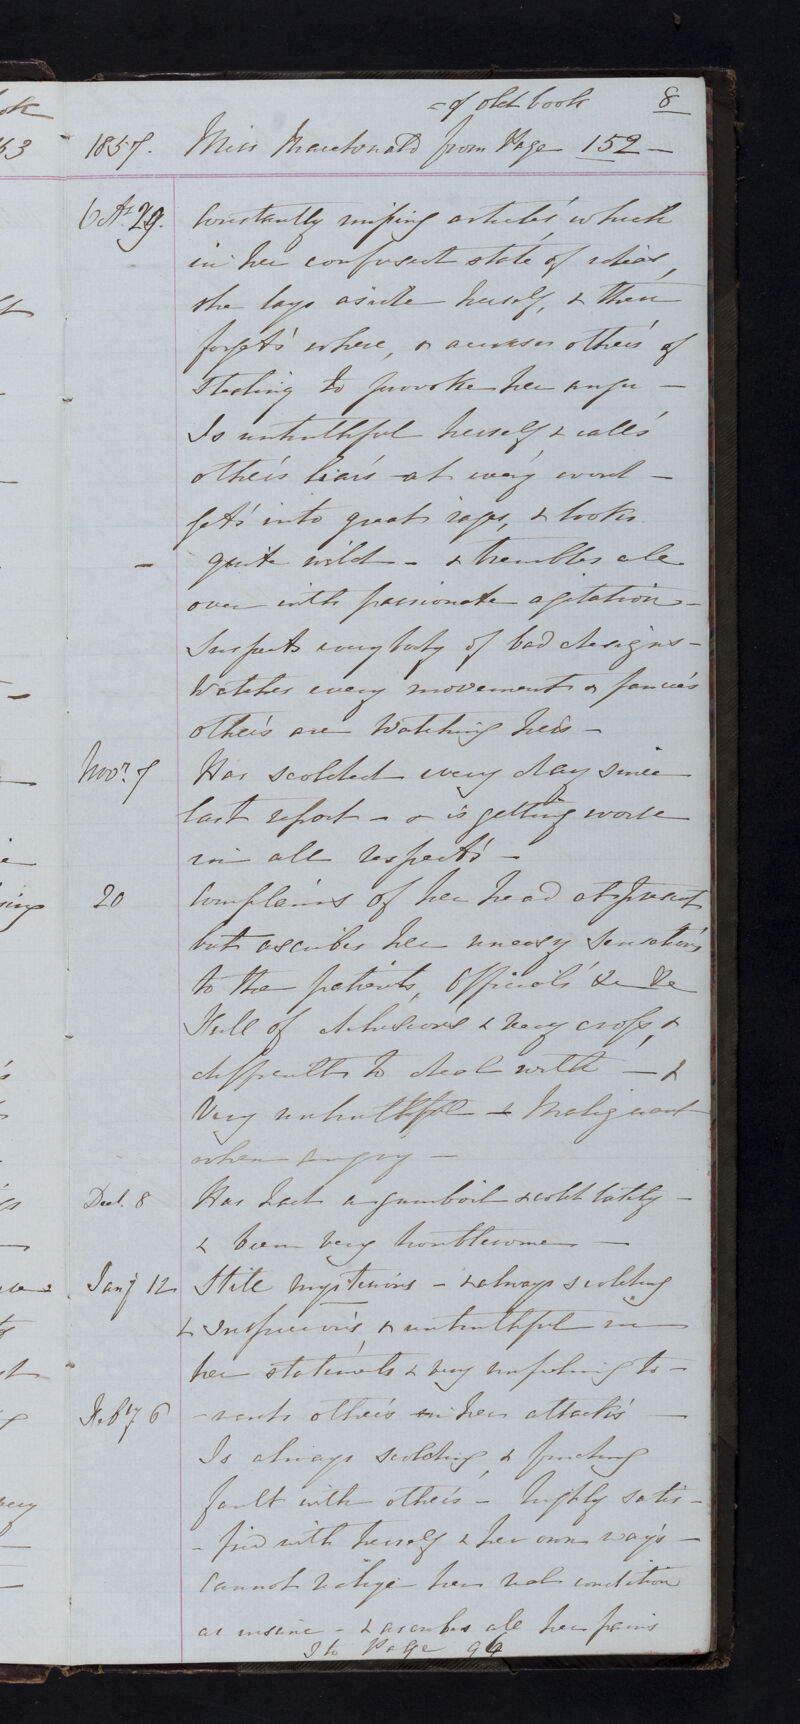 = of old book 8
1857. Miss Macdonald from Page 152 —
Octr 29. Constantly missing articles which
in her confused state of ideas,
she lays aside herself, & then
forgets where, & accuses others of
stealing to provoke her anger —
Is untruthful herself & calls
others liars at every word —
gets into great rages, & looks
quite wild - & trembles all
over with passionate agitation -
Suspects everybody of bad designs -
Watches every movement & fancies
others are watching her -
Novr. 7 Has scolded every day since
last report - & is getting worse
in all respects -
20 Complains of her head at present
but ascribes her uneasy sensations
to the patients, Officials &c &c
Full of delusions & very cross, &
difficult to deal with - &
Very untruthful & Malignant
when angry -
Decr. 8 Has had a gumboil & cold lately -
& been very troublesome —
Jany 12 Still mysterious - & always scolding
& suspicious, & untruthful in
her statements & very unfeeling to-
Feby 6 -wards others in her attacks —
Is always scolding, & finding
fault with others - highly satis-
-fied with herself & her own ways -
Cannot realize her real condition
as insane - & ascribes all her pains
to Page 96
ok
53